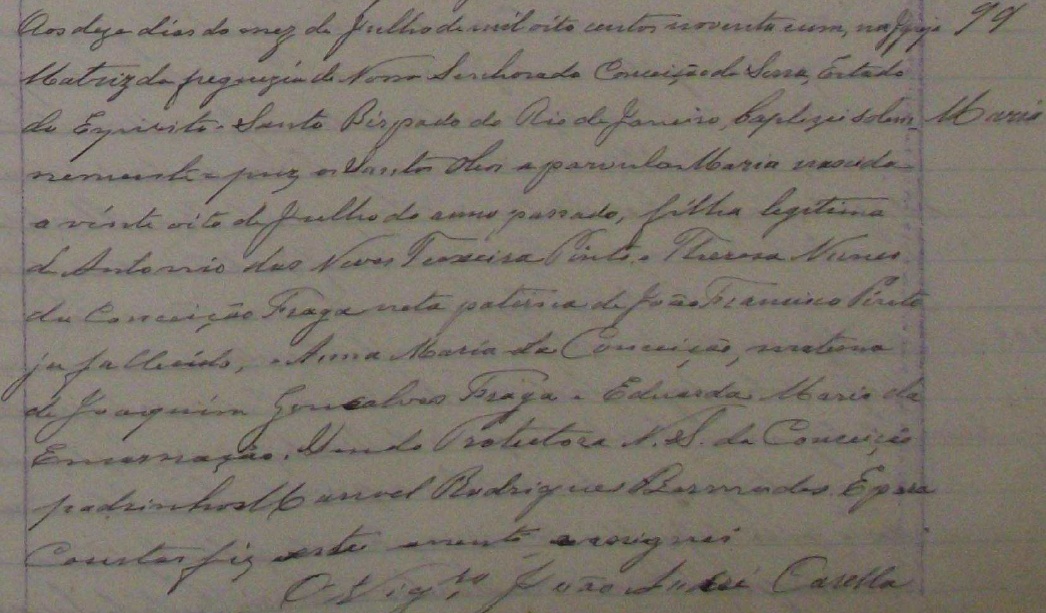 Aos doze dias do mez de Julho de mil oito centos noventa e um, na Igreja 99
Matriz da freguezia de Nossa Senhora da Conceição da Serra, Estado
do Espirito-Santo Bispado do Rio de Janeiro, baptizei solem- Maria
nemente e puz os Santos Oleos a parvula Maria nascida
a vinte oito de Julho do anno passado, filha legitima
de Antonio das Neves Teixeira Pinto e Thereza Nunes
da Conceição Fraga neta paterna de João Francisco Pinto
ja fallecido, e Anna Maria da Conceição, materna
de Joaquim Gonçalves Fraga e Eduarda Maria da
Encarnação. Sendo Protectora N. S. da Conceição
padrinhos Manoel Rodrigues Bermudes. E para
Constar fiz este assento e assignei
O Vigrº João André Casella